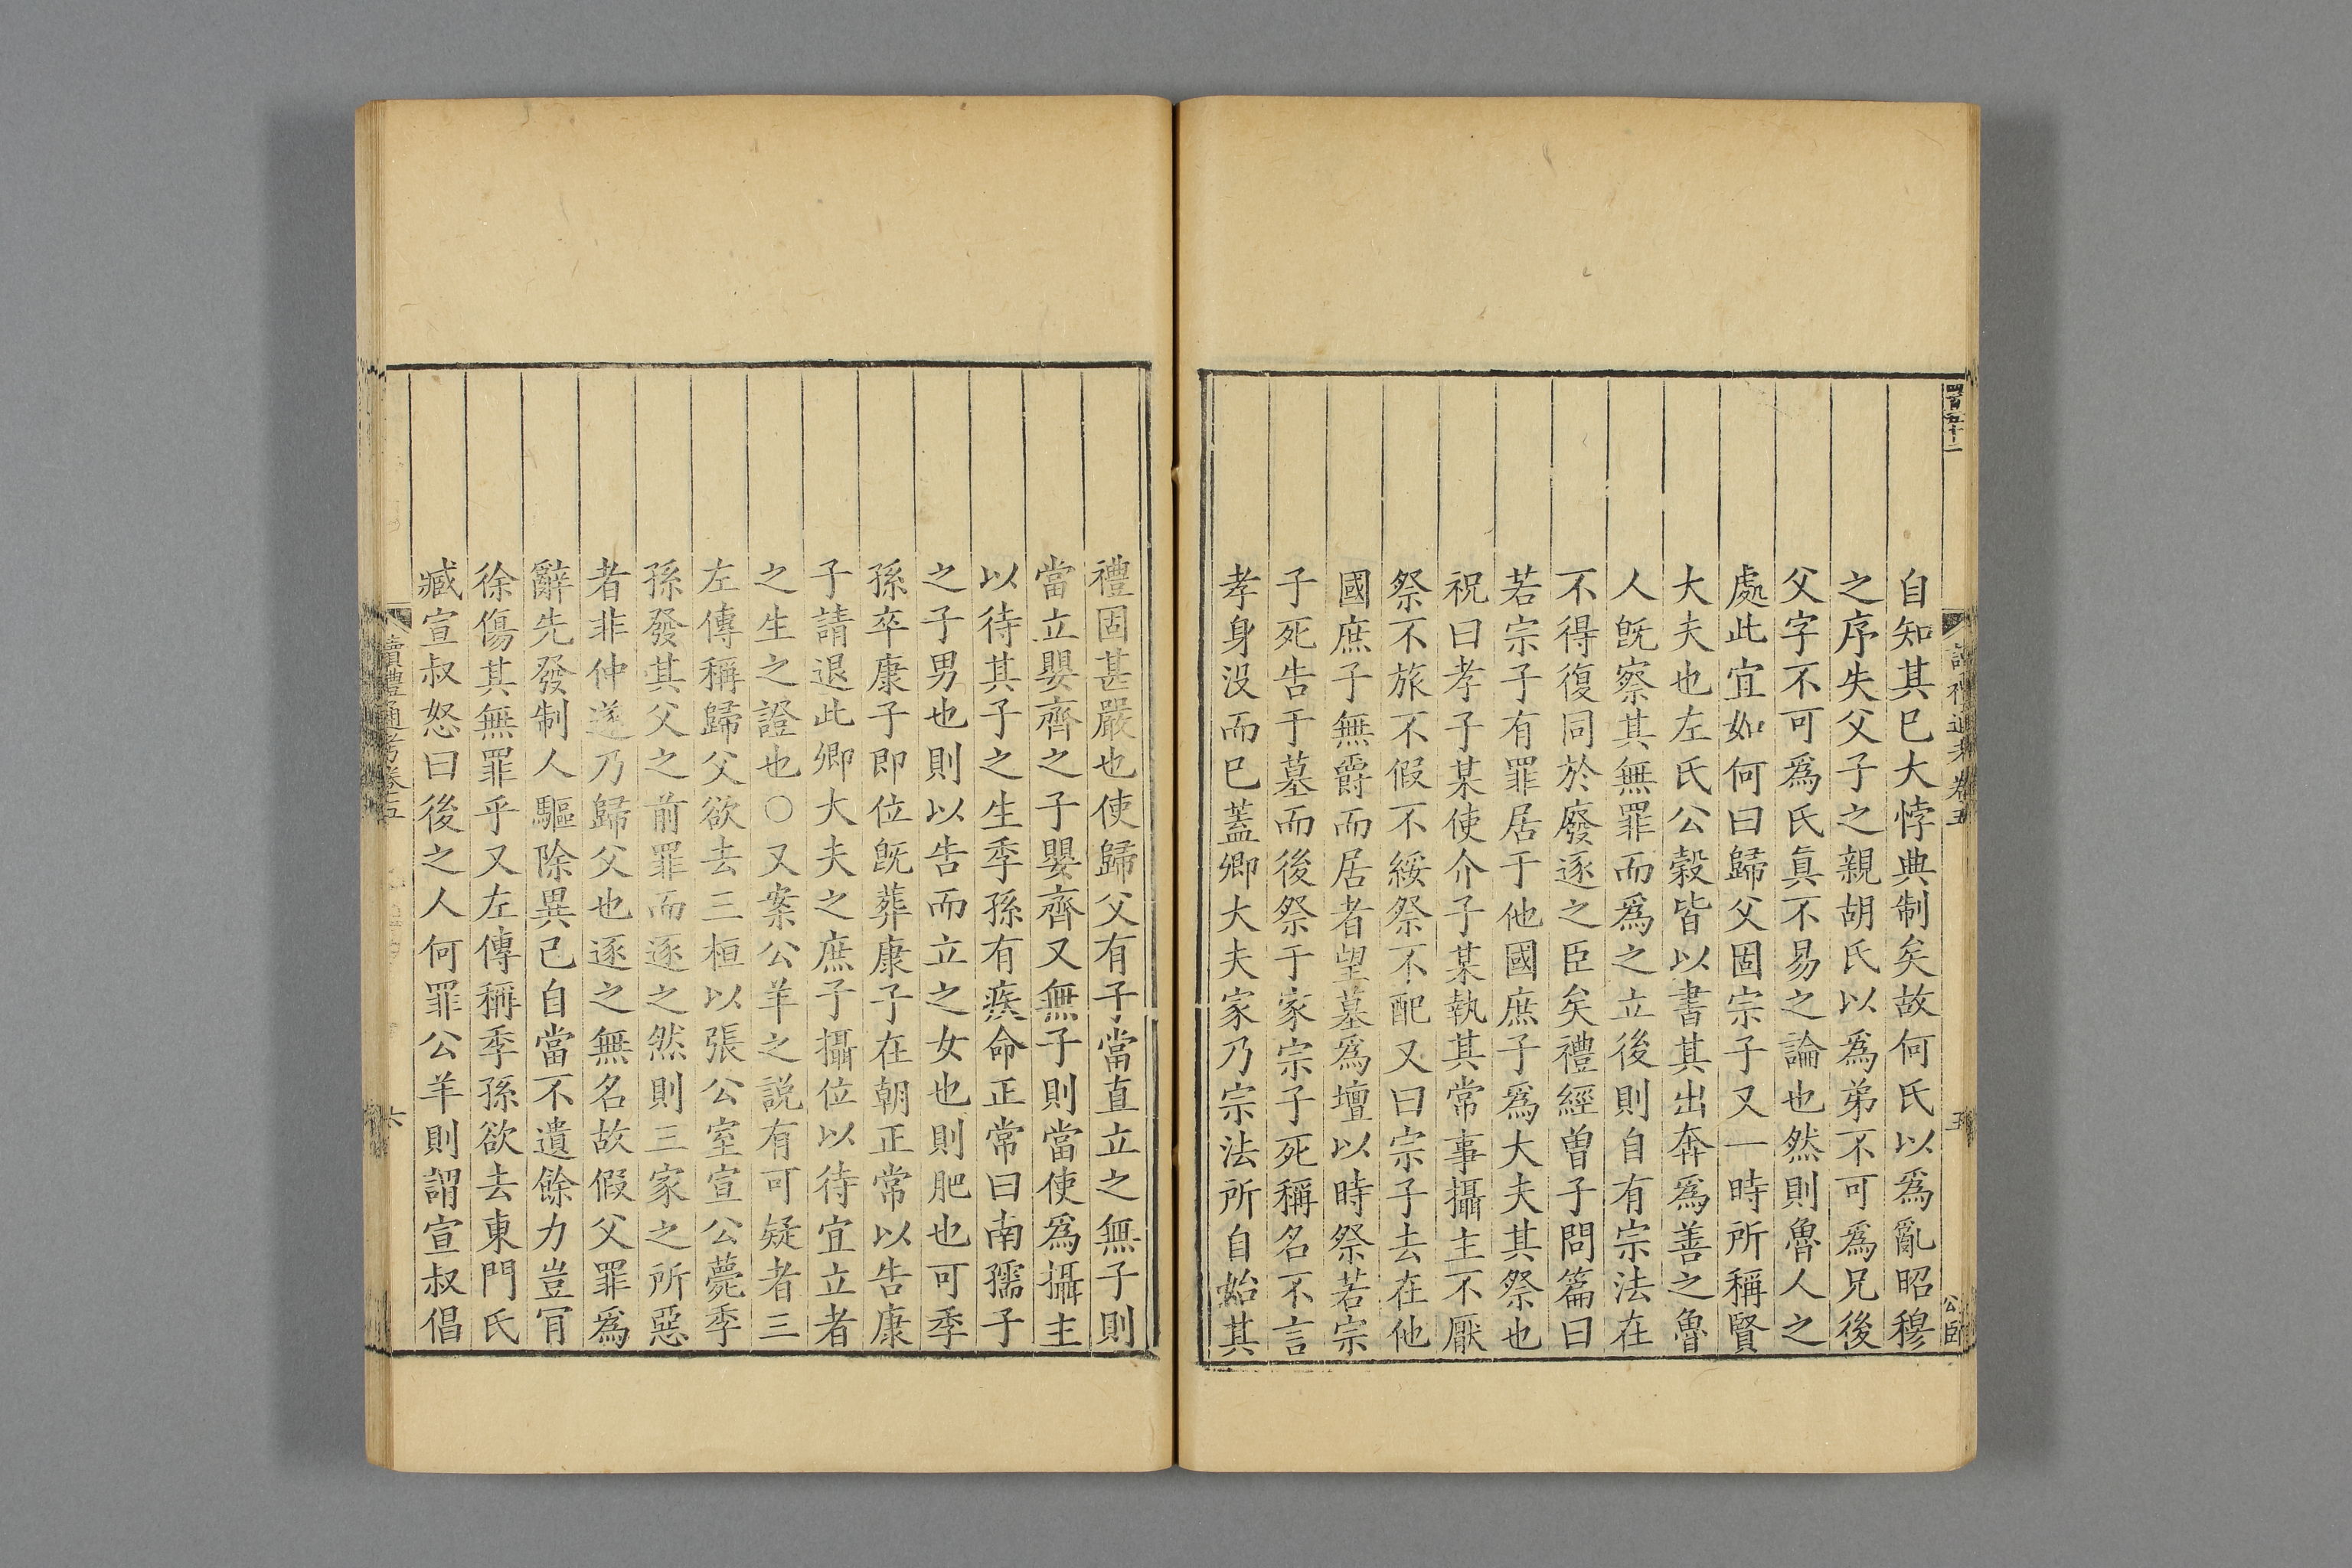 四百五十二
讀禮通考卷五
五
自知其已大悖典制矣故何氏以爲亂昭穆
之序失父子之親胡氏以爲弟不可爲兄後
父字不可爲氏眞不易之論也然則魯人之
處此宜如何曰歸父固宗子又一時所稱賢
大夫也左氏公穀皆以書其出奔爲善之魯
人旣察其無罪而爲之立後則自有宗法在
不得復同於廢逐之臣矣禮經曽子問篇曰
若宗子有罪居于他國庶子爲大夫其祭也
祝曰孝子某使介子某執其常事攝主不厭
祭不旅不假不綏祭不配又曰宗子去在他
國庶子無爵而居者望墓爲壇以時祭若宗
子死告于墓而後祭于家宗子死稱名不言
孝身没而已蓋卿大夫家乃宗法所自始其
禮固甚嚴也使歸父有子當直立之無子則
當立嬰齊之子嬰齊又無子則當使爲攝主
以待其子之生季孫有疾命正常曰南孺子
之子男也則以告而立之女也則肥也可季
孫卒康子即位旣葬康子在朝正常以告康
子請退此卿大夫之庶子攝位以待宜立者
之生之證也○又案公羊之說有可疑者三
左傳稱歸父欲去三桓以張公室宣公薨季
孫發其父之前罪而逐之然則三家之所惡
者非仲遂乃歸父也逐之無名故假父罪爲
辭先發制人驅除異己自當不遺餘力豈肎
徐傷其無罪乎又左傳稱季孫欲去東門氏
臧宣叔怒曰後之人何罪公羊則謂宣叔倡
讀禮通考卷五
六